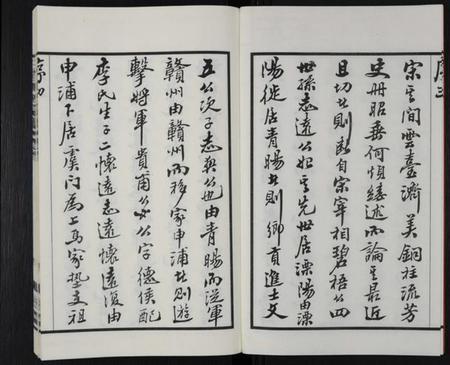 宋之間雲臺濟美銅柱流芳
史册昭垂何煩縷述而論之最近
且切者則斷自宋宰相碧梧公四
世孫志遠公始其先世居溧陽由溧
陽徙居青暘者則鄉貢進士文
五公次子志奭公也由青暘而從軍
贛州由贛州而移家申浦者則遊
擊將軍貴甫公公字德侯配
李氏生子二懷遠志遠懷遠復由
申浦下居虞門為上馬家墊支祖